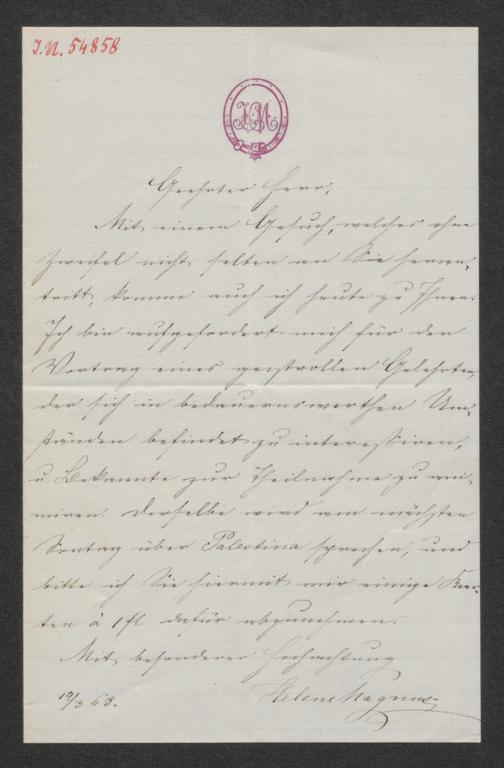 I.N. 54858
HM
Geehrter Herr,
Mit einem Gesuch, welches ohne
Zweifel nicht selten an Sie heran-
tritt, komme auch ich heute zu Ihnen.
Ich bin aufgefordert mich für den
Vortrag eines geistvollen Gelehrten,
der sich in bedauernswerthen Um-
ständen befindet zu interessiren,
u Bekannte zur Theilnahme zu ani-
miren. Derselbe wird am nächsten
Sontag über Palestina sprechen, und
bitte ich Sie hiermit mir einige Kar-
ten à 1 fl dafür abzunehmen.
Mit besonderer Hochachtung
19/3 68. Helene Magnus